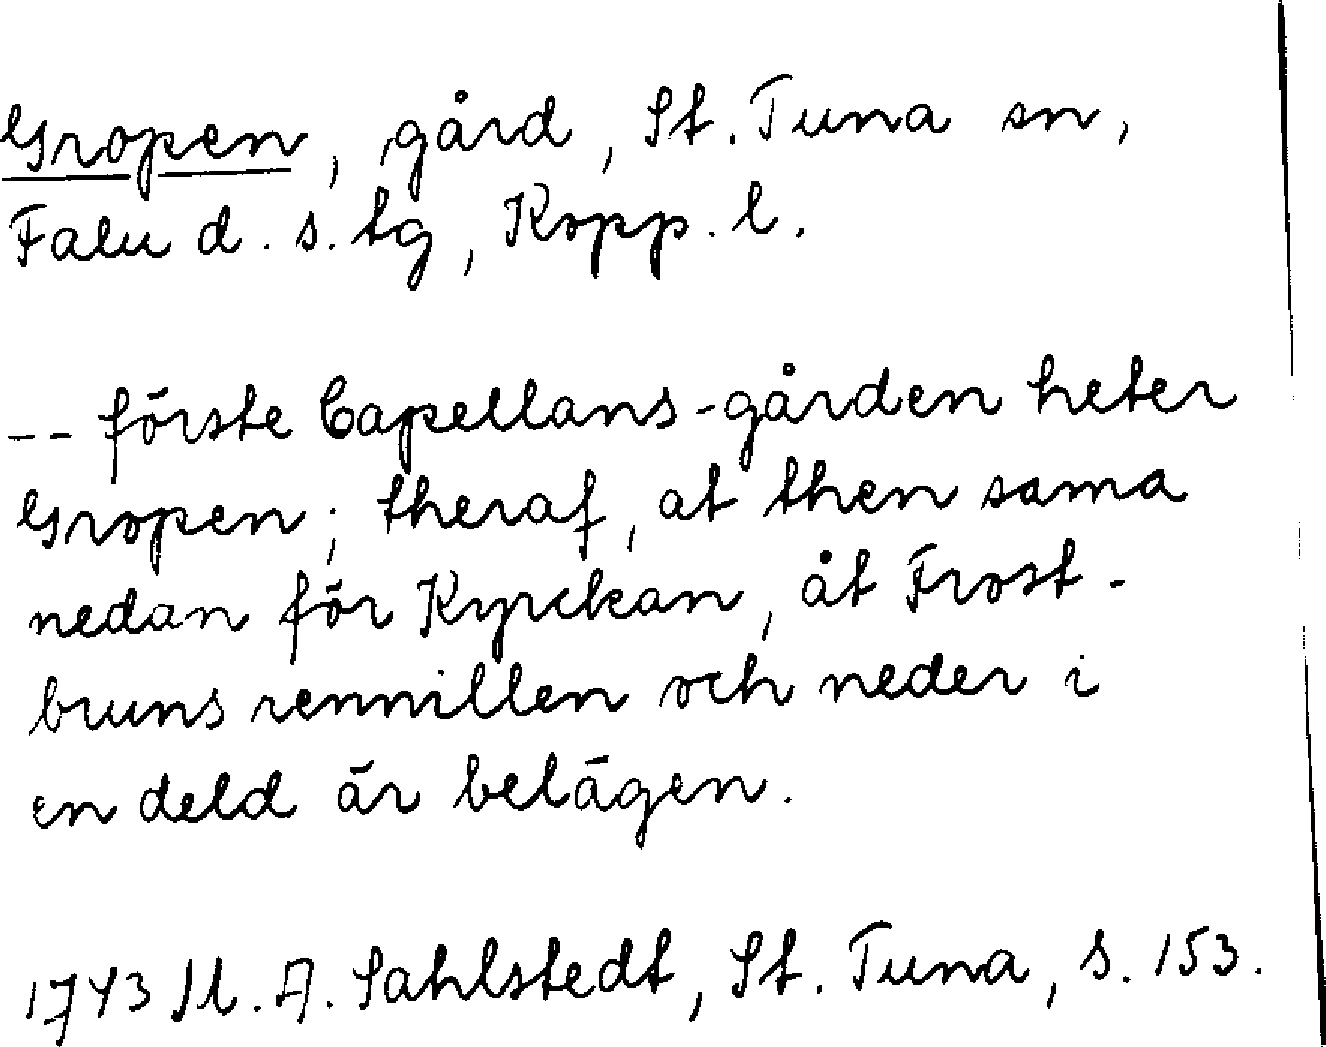 Gropen, gård, St. Tuna sn,
Falu d. s. tg, Kopp. l.
-- förste Capellans-gården heter
Gropen; theraf, at then sama
nedan för Kyrckan, åt Frost-
bruns rennillen och neder i
en deld är belägen.
1743 M. A. Sahlstedt, St. Tuna, s. 153.